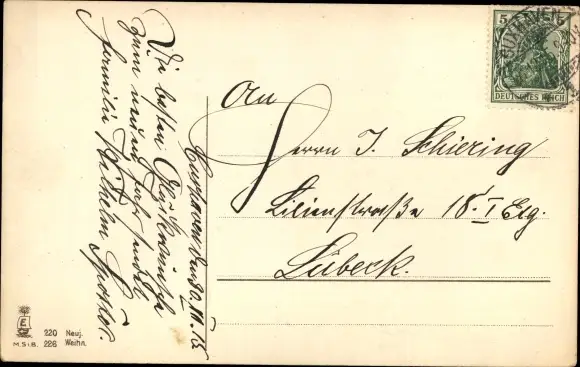 Die besten Glückwünsche
zum neuen Jahr sendet
Familie Wilhelm
Cuxhaven den 30. XII. 15
An
Herrn J. Schiering
Lilienstraße 18 I Etg.
Lübeck.
5
CUXHAVEN
DEUTSCHES REICH
E
220 Neuj.
M.S.i.B. 226 Weihn.